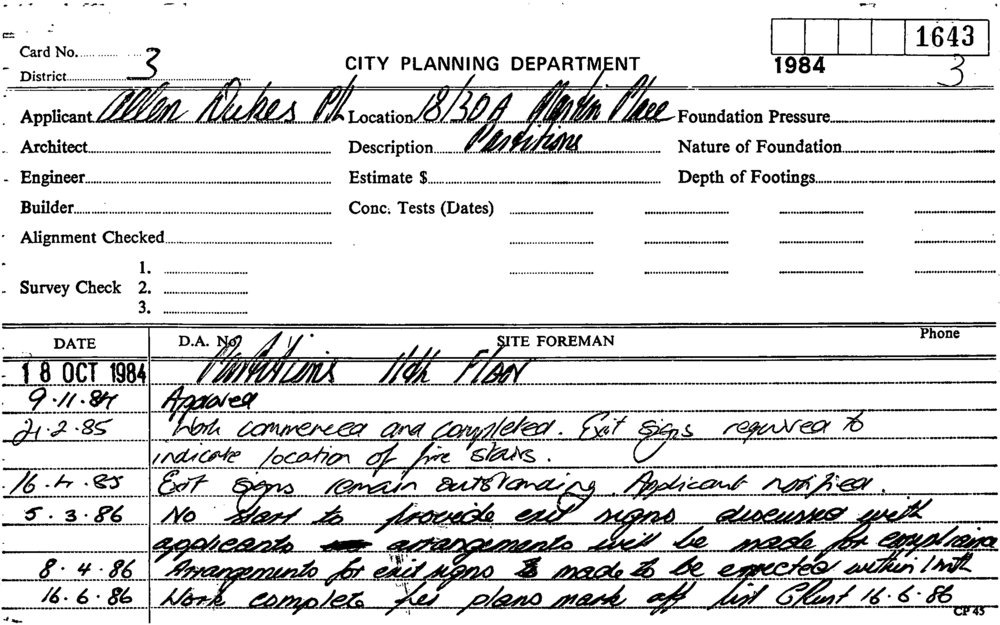 1643
Card No.
3
CITY PLANNING DEPARTMENT
1984
3
District
Applicant Allen Dukes P/L Location 18/30A Martin Place Foundation Pressure
Architect Description Partitions Nature of Foundation
Engineer Estimate $ Depth of Footings
Builder Conc. Tests (Dates)
Alignment Checked
1.
Survey Check 2.
3.
DATE D.A. No. SITE FOREMAN Phone
18 OCT 1984 Partitions 11th Floor
9.11.84 Approved
21.2.85 Work commenced and completed. Exit signs required to
indicate location of fire stairs.
16.4.85 Exit signs remain outstanding. Applicant notified.
5.3.86 No start to provide exit signs discussed with
applicants arrangements will be made for compliance
8.4.86 Arrangements for exit signs made to be erected within 1 mth
16.6.86 Work complete per plans mark off list 16.6.86
CP 45